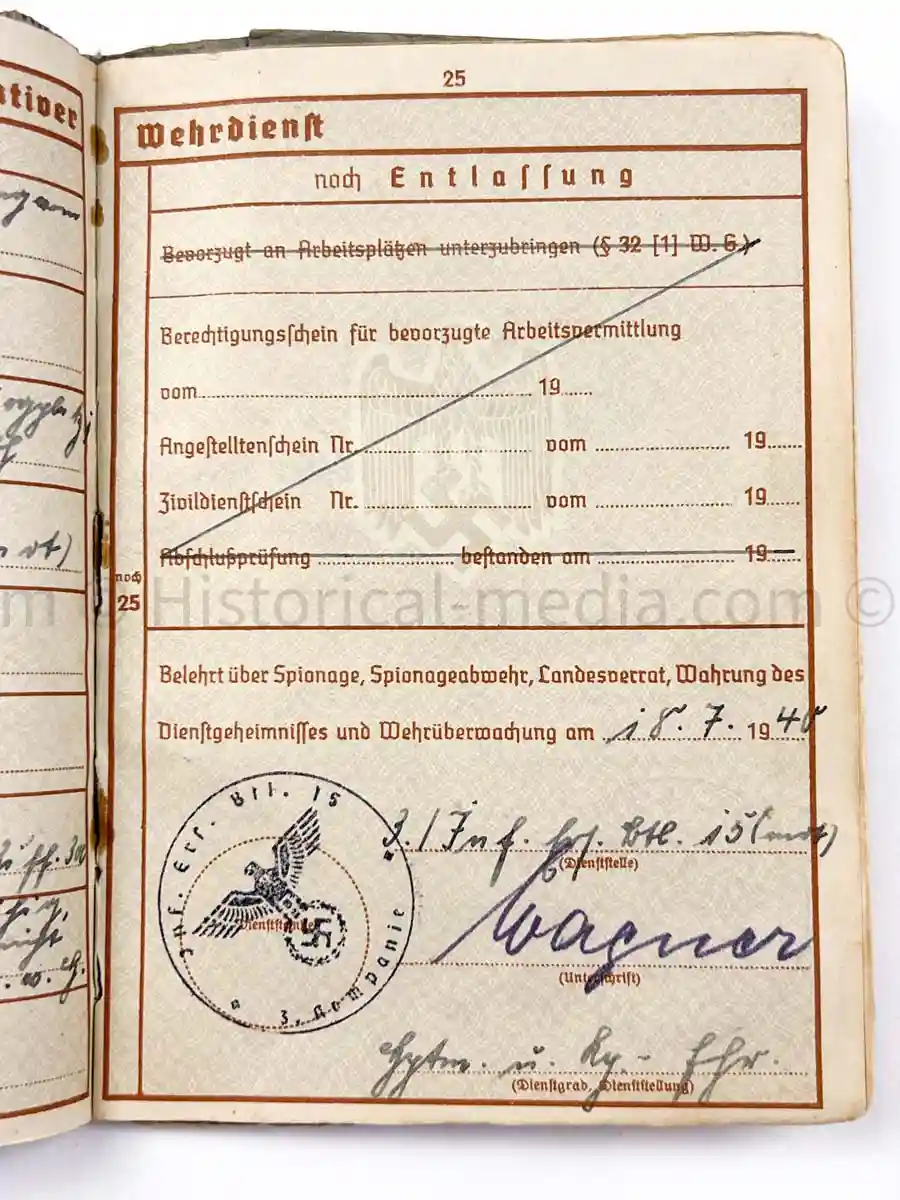 25
ativer
Wehrdienst
noch Entlassung
Bevorzugt an Arbeitsplätzen unterzubringen (§ 32 [1] W. G.)
Berechtigungsschein für bevorzugte Arbeitsvermittlung
vom 19
Angestelltenschein Nr. vom 19
Zivildienstschein Nr. vom 19
Abschlußprüfung bestanden am 19
noch
25
m © Historical-media.com ©
Belehrt über Spionage, Spionageabwehr, Landesverrat, Wahrung des
Dienstgeheimnisses und Wehrüberwachung am 18. 7. 1940
Inf. Ers. Btl. 15
3. Kompanie
Dienststempel
3./Inf. Ers. Btl. 15 (mot)
(Dienststelle)
Wagner
(Unterschrift)
Hptm. u. Kp.-Fhr.
(Dienstgrad, Dienststellung)